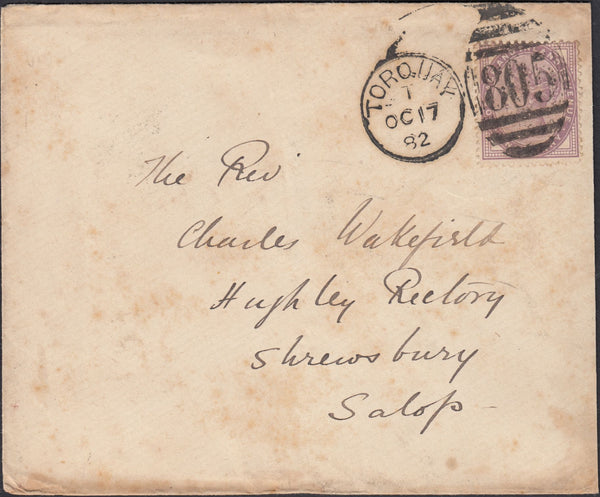 TORQUAY
T
OC 17
82
805
The Rev
Charles Wakefield
Hughley Rectory
Shrewsbury
Salop